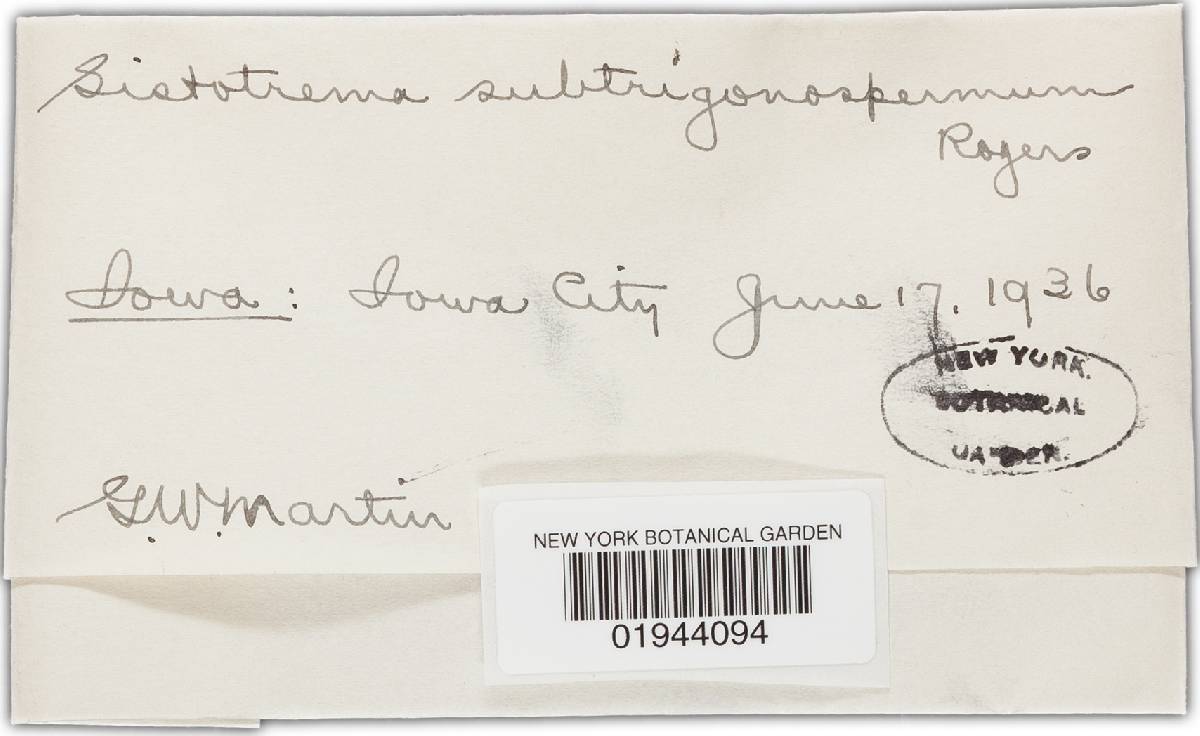 Sistotrema subtrigonospermum
Rogers
Iowa: Iowa City June 17, 1936
NEW YORK
BOTANICAL
GARDEN.
G.W. Martin
NEW YORK BOTANICAL GARDEN
01944094